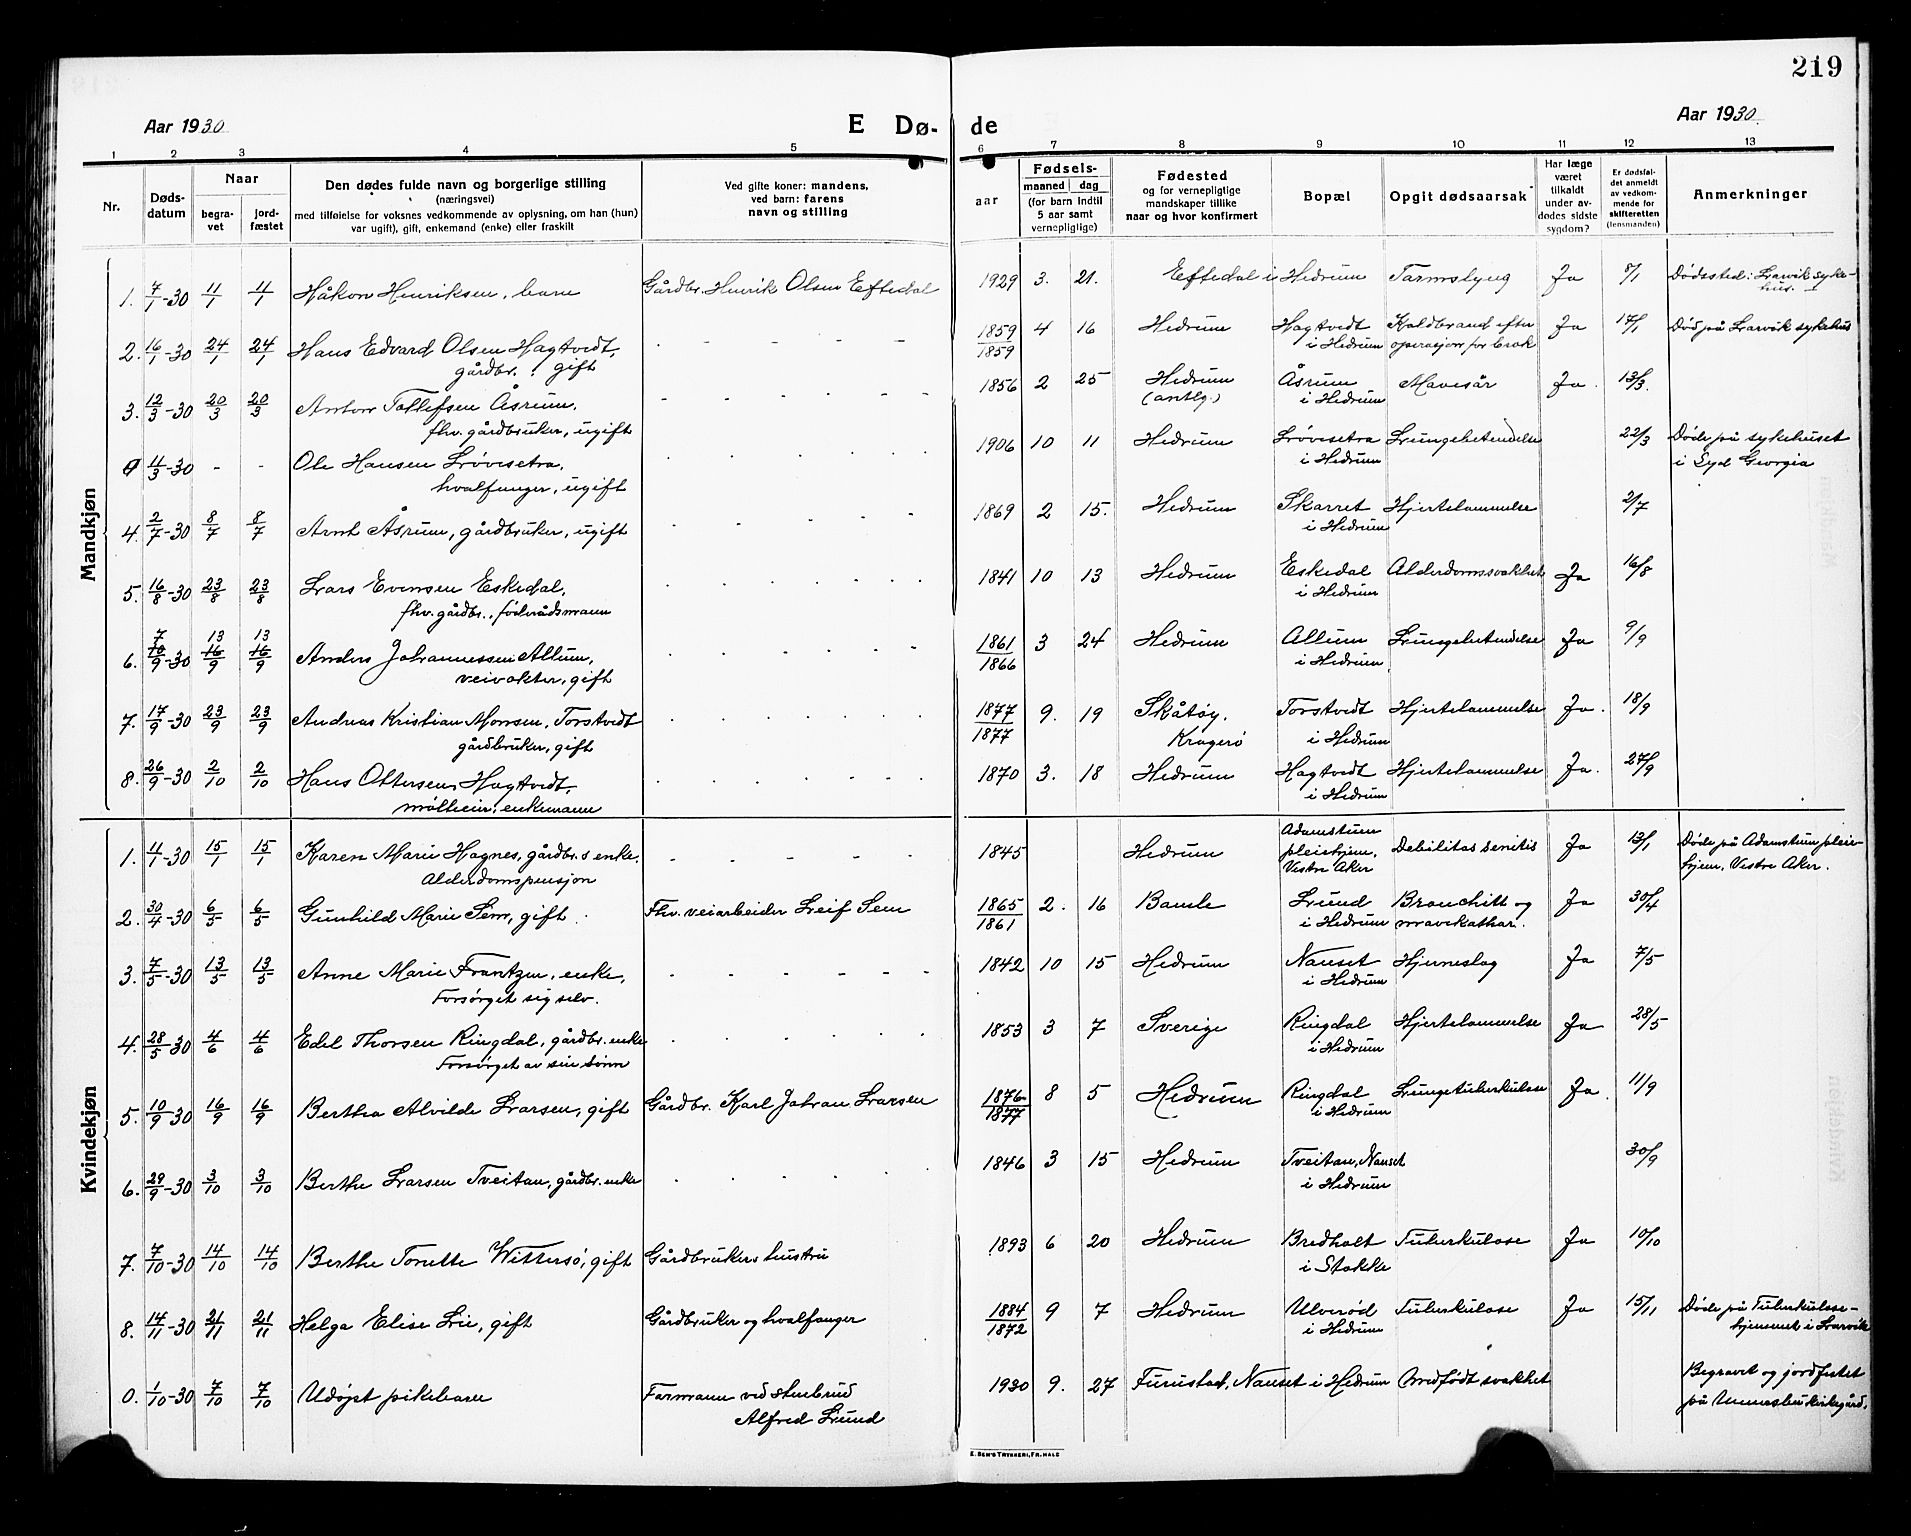 219
Aar 1930
E Dø-
de
Aar 1930.
1 2 3 4 5 6 7 8 9 10 11 12 13
Nr.
Døds-
datum
Naar
begra-
vet
jord-
fæstet
Den dødes fulde navn og borgerlige stilling
(næringsvei)
med tilføielse for voksnes vedkommende av oplysning, om han (hun)
var ugift), gift, enkemand (enke) eller fraskilt
Ved gifte koner: mandens,
ved barn: farens
navn og stilling
Fødsels-
aar
maaned
dag
(for barn indtil
5 aar samt
vernepligtige)
Fødested
og for vernepligtige
mandskaper tillike
naar og hvor konfirmert
Bopæl
Opgit dødsaarsak
Har læge
været
tilkaldt
under av-
dødes sidste
sygdom?
Er dødsfal-
det anmeldt
av vedkom-
mende for
skifteretten
(lensmanden)
Anmerkninger
Mandkjøn
1. 7/1-30 11/1 11/1 Håkon Henriksen, barn Gårdbr. Henrik Olsen Eftedal 1929 3. 21. Eftedal i Hedrum Tarmslyng Ja 8/1 Dødested: Larvik syke-
hus.
2. 16/1-30 24/1 24/1 Hans Edvard Olsen Hagtvedt, 1859 4 16 Hedrum Hagtvedt Koldbrand efter Ja 17/1 Død på Larvik sykehus
gårdbr., gift 1859 i Hedrum operasjon for brok
3. 12/3-30 20/3 20/3 Anton Tollefsen Åsrum, 1856 2 25 Hedrum Åsrum Mavesår Ja. 13/3.
fhv. gårdbruker, ugift (antlg.) i Hedrum
0 11/3-30 - - Ole Hansen Løvesetra, 1906 10 11 Hedrum Løvesetra Lungebetendelse 22/3 Døde på sykehuset
hvalfanger, ugift i Hedrum i Syd Georgia
4. 2/7-30 8/7 8/7 Arnt Åsrum, gårdbruker, ugift 1869 2 15. Hedrum Skarret Hjertelammelse 2/7
i Hedrum
5. 16/8-30 23/8 23/8 Lars Evensen Eskedal, 1841 10 13 Hedrum Eskedal Alderdomssvakhet Ja 16/8
fhv. gårdbr., føderådsmann i Hedrum
7 13 13
6. 10/9-30 16/9 16/9 Anders Johannessen Allum, 1861 3 24 Hedrum Allum Lungebetendelse Ja 9/9
veivokter, gift 1866 i Hedrum
7. 17/9-30 23/9 23/9 Andreas Kristian Monsen, Torstvedt 1877 9. 19 Skåtøy, Torstvedt Hjertelammelse Ja. 18/9
gårdbruker, gift 1877 Kragerø i Hedrum
8. 26/9-30 2/10 2/10 Hans Ottersen, Hagtvedt, 1870 3. 18 Hedrum Hagtvedt Hjertelammelse Ja. 27/9
enkemann i Hedrum
Kvindekjøn
Adamstuen
1. 11/1-30 15/1 15/1 Karen Marie Hagnes, gårdbr.s enke. 1845 Hedrum pleiehjem, Debilitas senilis Ja 13/1 Døde på Adamstuen pleie-
Alderdomspensjon Vestre Aker hjem, Vestre Aker.
2. 30/4-30 6/5 6/5 Gunhild Marie Sem, gift Fhv. veiarbeider Leif Sem 1865 2. 16 Bamle Lund Bronchitt og Ja 30/4
1861 i Hedrum mavekathar.
3. 7/5-30 13/5 13/5 Anne Marie Frantzen, enke, 1842 10 15 Hedrum Nanset Hjerneslag Ja 7/5
Forsørget sig selv. i Hedrum
4. 28/5-30 4/6 4/6 Edel Thorsen Ringdal, gårdbr. enke 1853 3 7 Sverige Ringdal Hjertelammelse Ja 28/5
Forsørget av sin sønn i Hedrum
5. 10/9-30 16/9 16/9 Bertha Alvilde Larsen, gift Gårdbr. Karl Johan Larsen 1876 8 5 Hedrum Ringdal Lungetuberkulose Ja. 11/9
1877 i Hedrum
6. 29/9-30 3/10 3/10 Berthe Larsen Tveitan, gårdbr. enke 1846 3 15 Hedrum Tveitan, Nanset 30/9
i Hedrum
7. 7/10-30 14/10 14/10 Berthe Torette Wittersø, gift Gårdbrukers hustru 1893 6 20 Hedrum Bredholt Tuberkulose Ja 10/10
i Stokke
8. 14/11-30 21/11 21/11 Helga Elise Lie, gift Gårdbruker og hvalfanger 1884 9 7 Hedrum Ulverød Tuberkulose Ja 15/11 Døde på Tuberkulose-
1872 i Hedrum hjemmet i Larvik
0. 1/10-30 7/10 7/10 Udøpt pikebarn Formann ved stenbrud 1930 9. 27 Furustad, Nanset i Hedrum Medfødt svakhet Begravet og jordfestet
Alfred Lund på kirkegård.
E. SEM'S TRYKKERI, FR.HALD